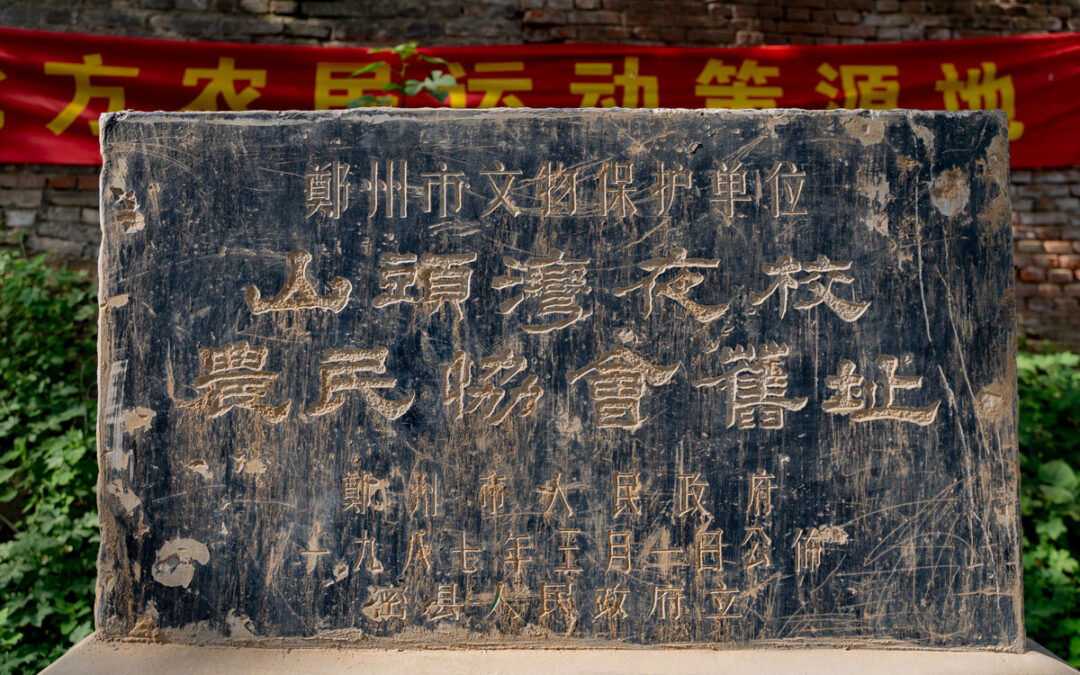 方农民运动策源地
郑州市文物保护单位
山頭灣夜校
農民協會舊址
郑州市人民政府
一九八七年五月一日公佈
密县人民政府立